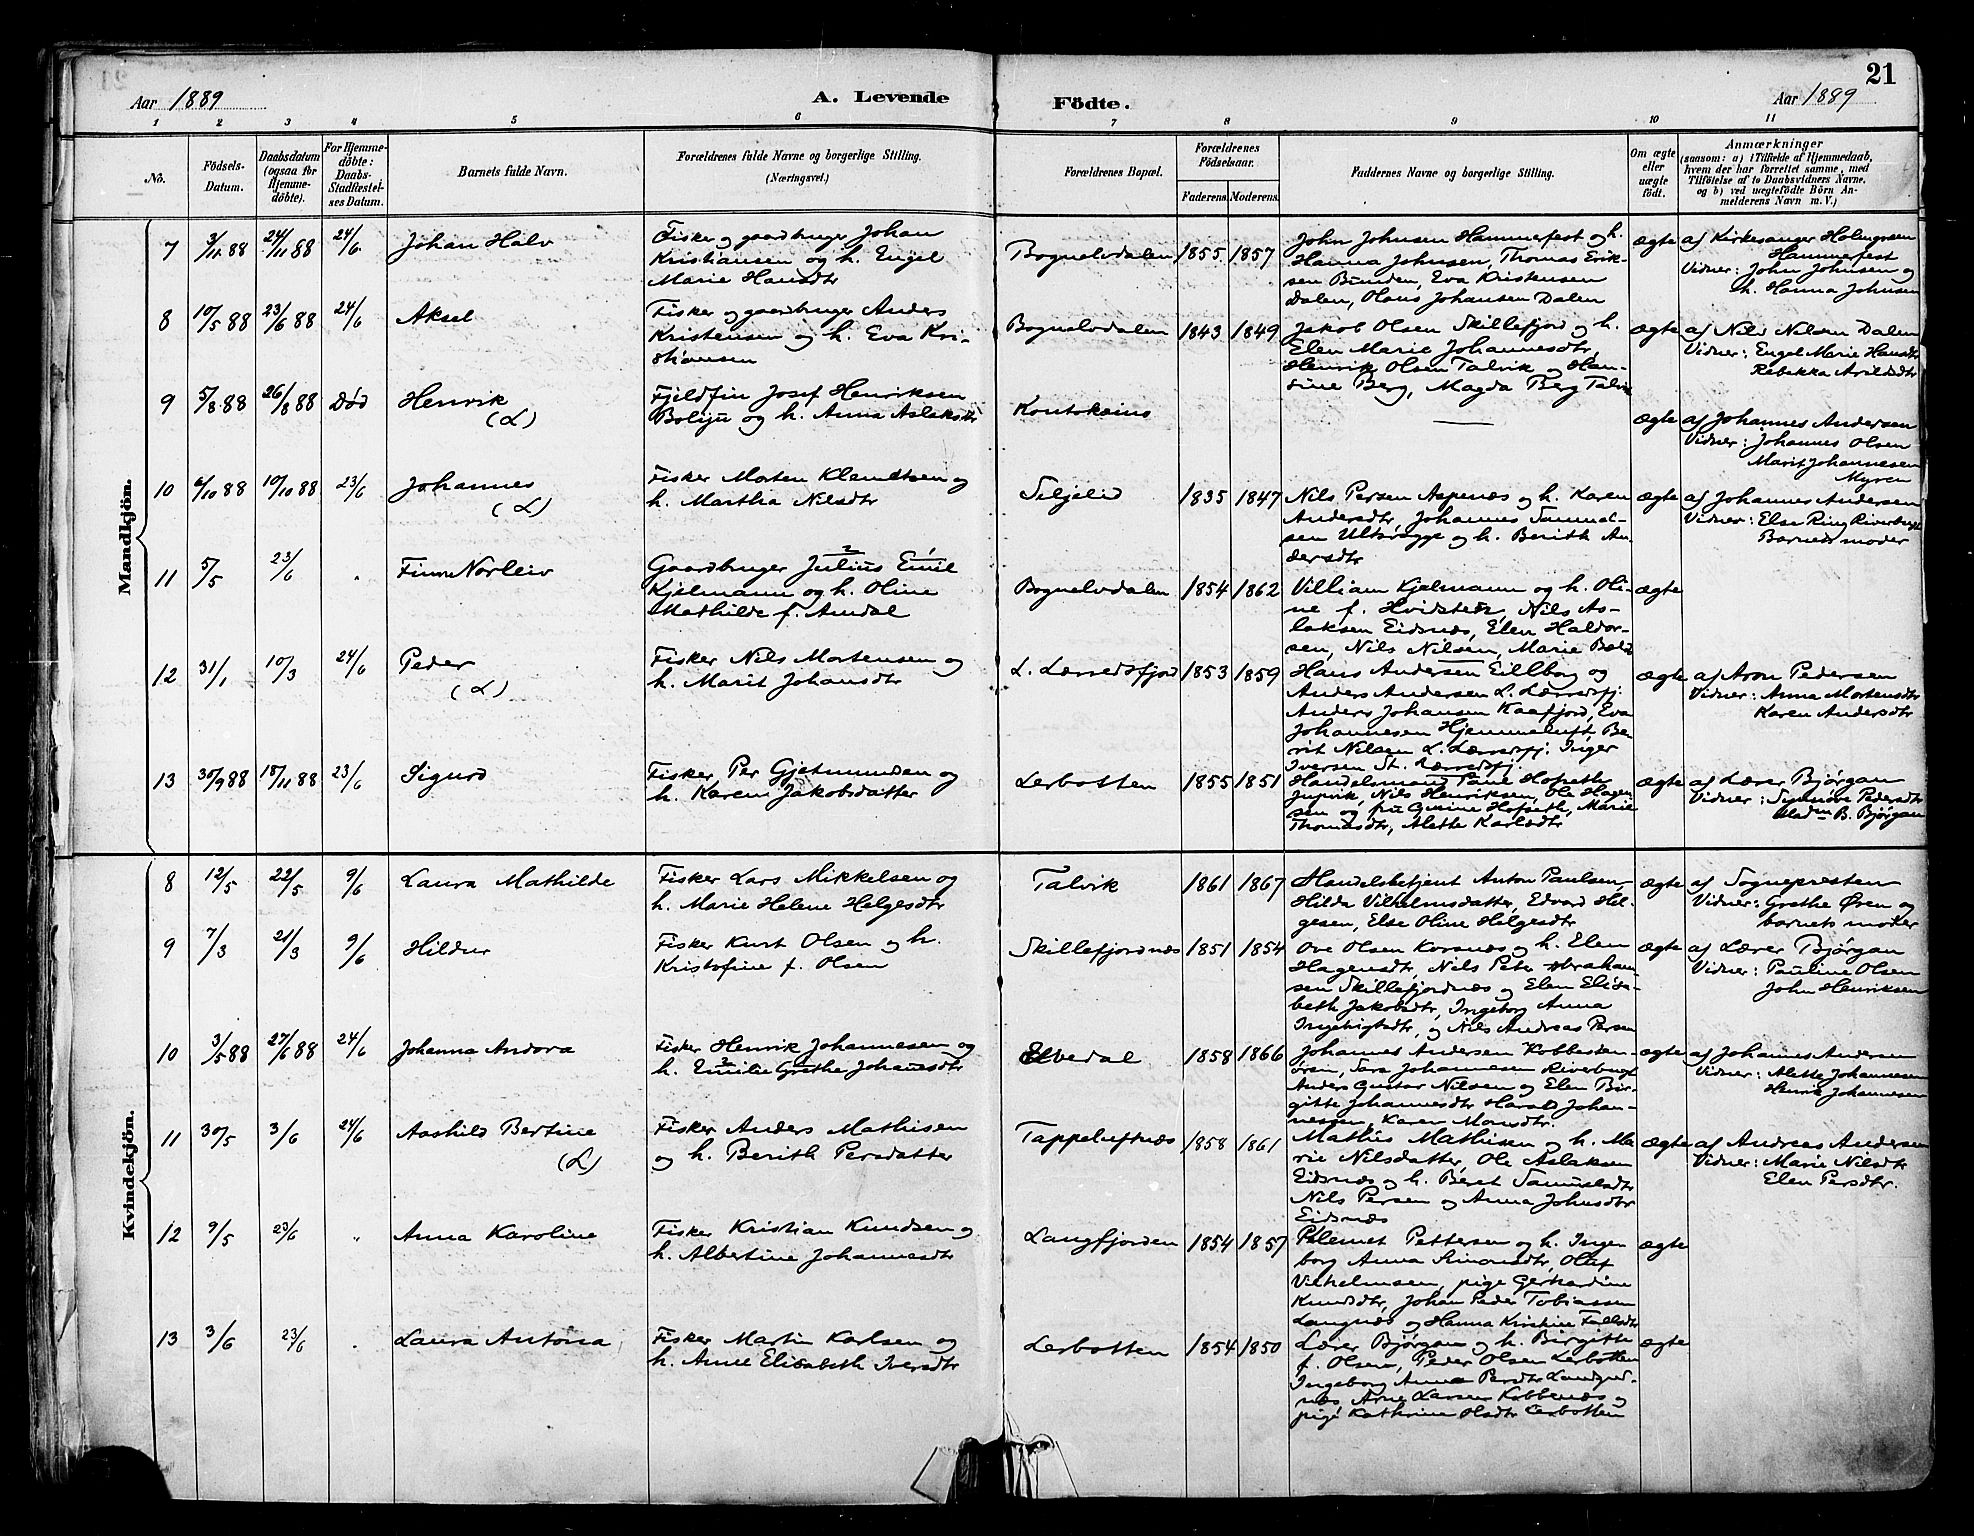 21
Aar 1889 A. Levende Födte. Aar 1889
1 2 3 4 5 6 7 8 9 10 11
No.
Födsels-Datum.
Daabsdatum (ogsaa for Hjemme-döbte).
For Hjemme-döbte: Daabs-Stadfæstel-ses Datum.
Barnets fulde Navn.
Forældrenes fulde Navne og borgerlige Stilling.
(Næringsvei.)
Forældrenes Bopæl.
Forældrenes Födselsaar.
Faderens. Moderens.
Faddernes Navne og borgerlige Stilling.
Om ægte eller uægte födt.
Anmærkninger
(saasom: a) i Tilfælde af Hjemmedaab,
hvem der har forrettet samme, med
Tilföielse af to Daabsvidners Navne,
og b) ved uægtefödte Börn An-
melderens Navn m. V.)
Mandkjön.
7 3/11 88 24/11 88 24/6 Johan Halv
Fisker og gaardbruger Johan
Kristiansen og h. Engel
Marie Hansdtr
Bognelvdalen 1855 1857
John Johnsen Hammerfest og h.
Hanna Johnsen, Thomas Erik-
sen Bunden, Eva Kristensen
Dalen, Hans Johansen Dalen
ægte
af Kirkesanger Holmgrsen
Hammerfest
Vidner: John Johnsen og
h. Hanna Johnsen
8 10/5 88 23/6 88 24/6 Aksel
Fisker og gaardbruger Anders
Kristensen og h. Eva Kri-
stiansen
Bognelvdalen 1843 1849
Jakob Olsen Skillefjord og h.
Elen Marie Johannesdtr,
Henrik Olsen Talvik og Han-
sine Berg, Magda Berg Talvik
ægte
af Nils Nilsen Dalen
Vidner: Engel Marie Hansdtr
Rebekka Arildsdtr
9 5/8 88 26/8 88 Død Henrik
(L)
Fjeldfin Josef Henriksen
og h. Anna Aslaksdtr
Koutokeino
ægte
af Johannes Andersen
Vidner: Johannes Olsen
Marit Johannesen
Myren
10 6/10 88 10/10 88 23/6 Johannes
(L)
Fisker Morten Klemetsen og
h. Martha Nilsdtr
1835 1847
Nils Persen Aspenæs og h. Karen
Andersdtr, Johannes Samuel-
sen Ultsvogge og h. Berith An-
dersdtr
ægte
af Johannes Andersen
Vidner: Else Ring Riverbugt
Barnets moder
11 5/5 23/6 " Finn Norleiv
Gaardbruger Julius Emil
Kjelmann og h. Oline
Mathilde f. Amdal
Bognelvdalen 1854 1862
Villiam Kjelmann og h. Oli-
ne f. Hvidsteen, Nils As-
laksen Eidsnæs, Elen Haldor-
sen, Nils Nilsen, Marie
ægte
12 31/1 10/3 24/6 Peder
(L)
Fisker Nils Mortensen og
h. Marit Johansdtr
L. Lærredsfjord 1853 1859
Hans Andersen Eillborg og
Anders Andersen L. Lærredsfj.
Anders Johansen Kaafjord, Eva
Johannesen Hjemmeluft, Be-
rit Nilsen L. Lærredsfj. Inger
Iversen St. Lærredsfj.
ægte
af Aron Pedersen
Vidner: Anna Mortensdtr
Karen Andersdtr
13 30/9 88 18/11 88 23/6 Sigurd
Fisker Per Gjetmundsen og
h. Karen Jakobsdatter
Lerbotten 1855 1851
Handelsmand Hofseth
Jupvik, Nils Henriksen, Ole Hagen
sen og fru Hofseth, Marie
Thomasdtr, Alette Karlsdtr
ægte
af Lærer Bjørgan
Vidner: Synnøve Pedersdtr
Madm B. Bjørgan
Kvindekjön.
8 12/5 22/5 9/6 Laura Mathilde
Fisker Lars Mikkelsen og
h. Marie Helene Helgesdtr
Talvik 1861 1867
Handelsbetjent Anton Paulsen,
Hilda Vilhelmsdatter, Edvard Hel-
gesen, Else Oline Helgesdtr
ægte
af Sognepresten
Vidner: Grethe Øren og
barnets moder
9 7/3 21/3 9/6 Hildur
Fisker Kurt Olsen og h.
Kristofine f. Olsen
Skillefjordnæs 1851 1854
Ove Olsen Korsnæs og h. Elen
Hagensdtr, Nils Peter Abraham-
sen Skillefjordnæs og Elen Elisa-
beth Jakobsdtr, Ingeborg Anna
Ingebrigtsdtr, og Nils Andreas Persen
ægte
af Lærer Bjørgan
Vidner: Pauline Olsen
John Henriksen
10 3/5 88 27/6 88 24/6 Johanna Andora
Fisker Henrik Johannesen og
h. Emilie Grethe Johansdtr
Elvedal 1858 1866
Johannes Andersen
ören, Sara Johannesen Riverbugt
Anders Gustav Nilsen og Elen Bir-
gitte Johannesdtr Harald Johan-
nessen, Karen Monsdtr.
ægte
af Johannes Andersen
Vidner: Alette Johannesen
Henrik Johannesen
11 30/5 3/6 24/6 Aashild Bertine
(L)
Fisker Anders Mathisen
og h. Berith Persdatter
Tappeluftnæs 1858 1861
Mathis Mathisen og h. Ma-
rie Nilsdatter, Ole Aslaksen
Eidsnæs og h. Beret Samuelsdtr
Nils Persen og Anna Johnsdtr
Eidsnæs
ægte
af Andreas Andersen
Vidner: Marie Nilsdtr
Elen Persdtr.
12 9/5 23/6 " Anna Karoline
Fisker Kristian Knudsen og
h. Albertine Johannesdtr
Langfjorden 1854 1857
Pettersen og h. Inge
borg Anna Simonsdtr, Olaf
Vilhelmsen, pige Gerhardine
Knudsdtr, Johan Peder Tobiassen
Langnæs og Hanna Kristine
ægte
13 3/6 23/6 " Laura Antona
Fisker Martin Karlsen og
h. Anne Elisabeth Iversdtr
Lerbotten 1854 1850
Lærer Bjørgan og h. Birgitte
f. Olsen, Peder Olsen Lerbotten
Ingeborg Anna Persdtr
næs, Arne Larsen Kobbenæs og
pige Kathrine Lerbotten
ægte